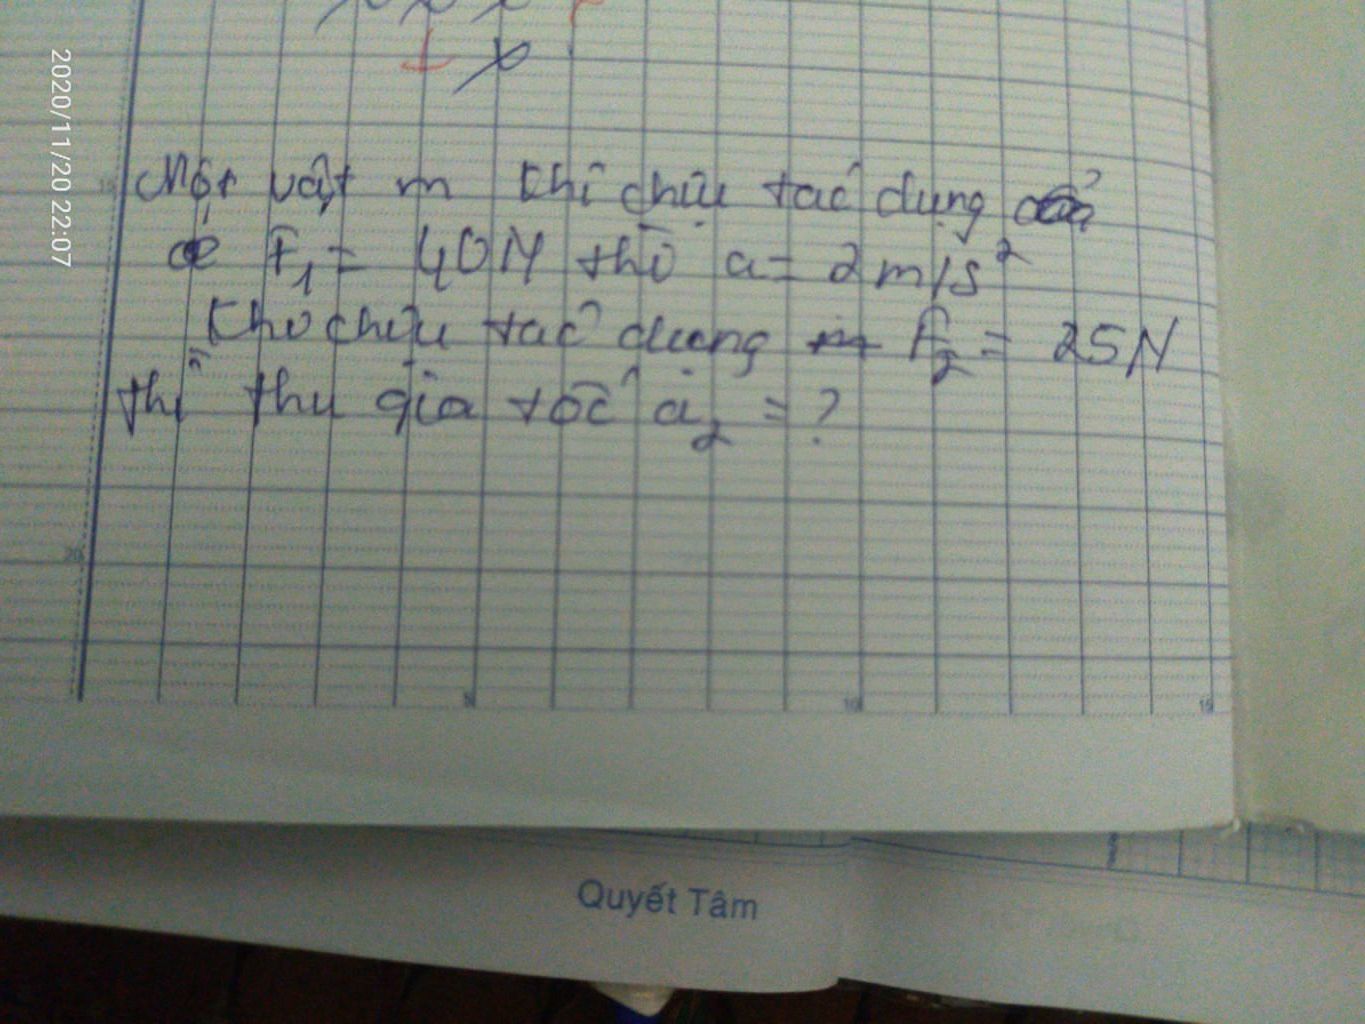 2020/11/20 22:07
Một vật m khi chịu tác dụng
F₁ = 40N thì a = 2 m/s²
Khi chịu tác dụng F₂ = 25N
thì thu gia tốc a₂ = ?
20
5
10
15
Quyết Tâm